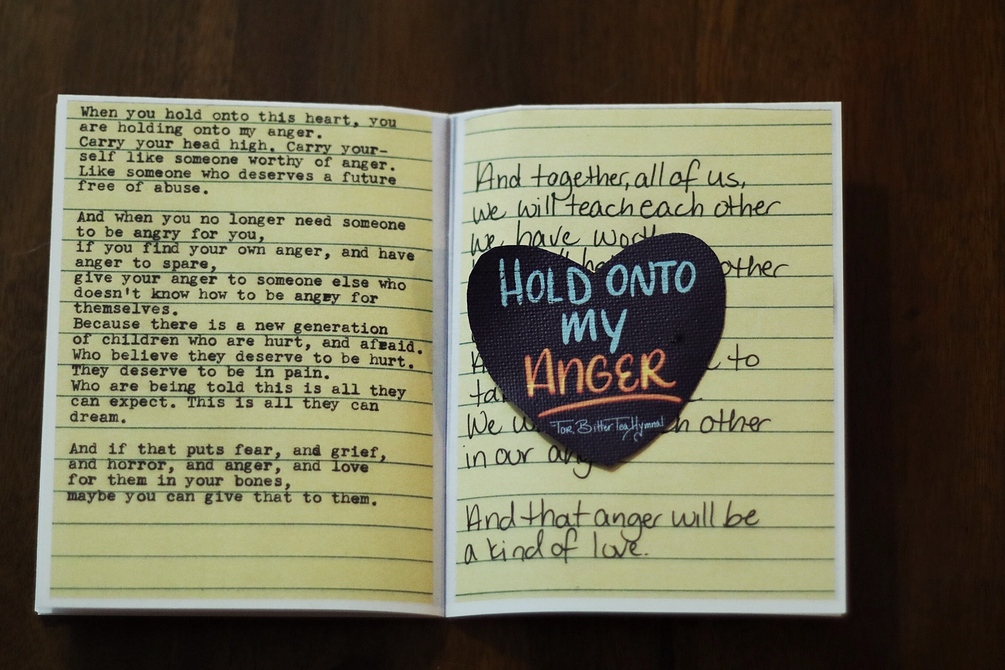 When you hold onto this heart, you
are holding onto my anger.
Carry your head high. Carry your-
self like someone worthy of anger.
Like someone who deserves a future
free of abuse.
And when you no longer need someone
to be angry for you,
if you find your own anger, and have
anger to spare,
give your anger to someone else who
doesn't know how to be angry for
themselves.
Because there is a new generation
of children who are hurt, and afraid.
Who believe they deserve to be hurt.
They deserve to be in pain.
Who are being told this is all they
can expect. This is all they can
dream.
And if that puts fear, and grief,
and horror, and anger, and love
for them in your bones,
maybe you can give that to them.
And together, all of us,
we will teach each other
we have
other
to
We
other
in our
And that anger will be
a kind of love.
HOLD ONTO
MY
ANGER